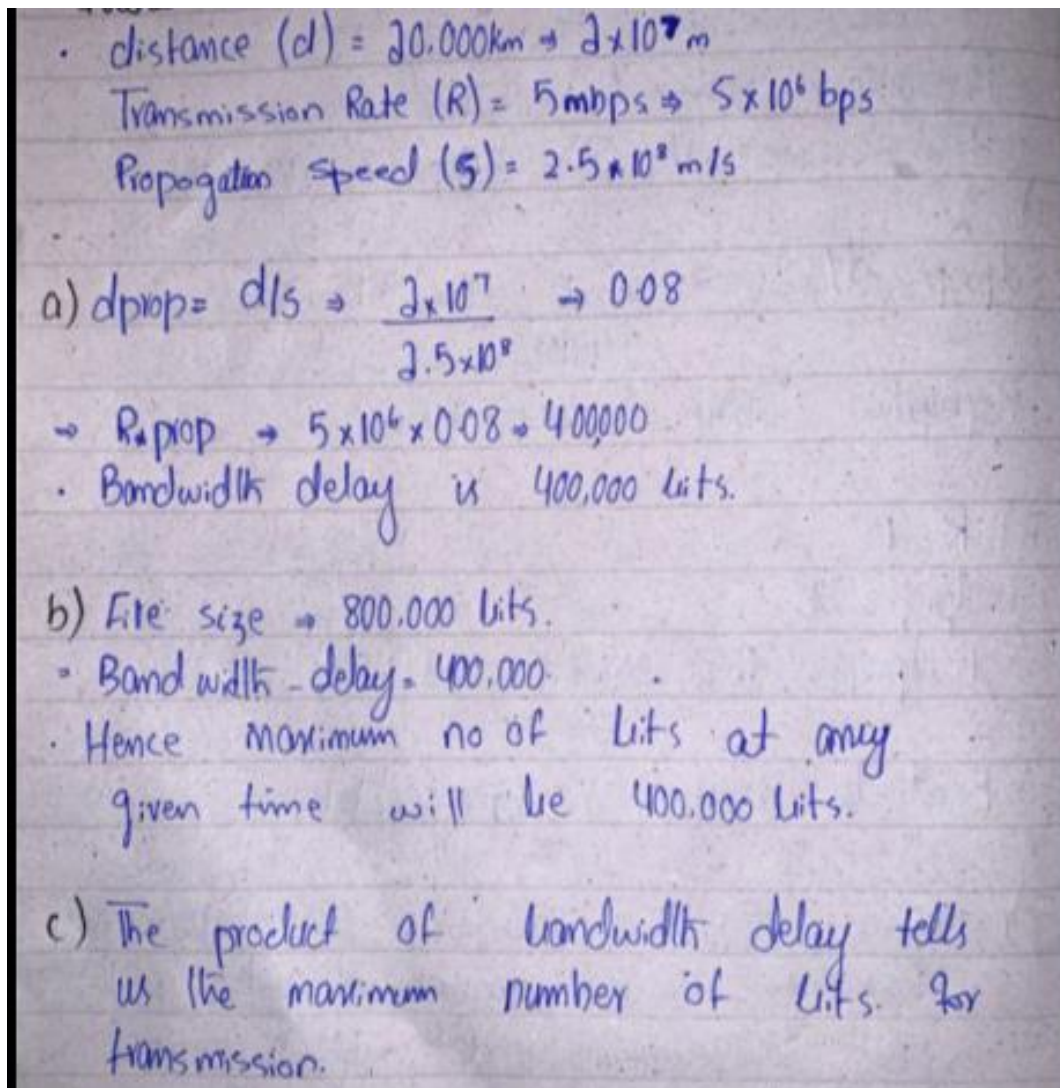 • distance (d) = 20.000km → 2x10⁷ m
Transmission Rate (R) = 5mbps ⇒ 5x10⁶ bps
Propogation speed (s) = 2.5x10⁸ m/s
a) dprop= d/s → 2x10⁷ → 0.08
2.5x10⁸
→ R*prop → 5x10⁶ x 0.08 → 400,000
• Bandwidth delay is 400,000 bits.
b) File size → 800.000 bits.
• Band width - delay = 400.000
• Hence maximum no of bits at any
given time will be 400.000 bits.
c) The product of bandwidth delay tells
us the maximum number of bits. for
transmission.